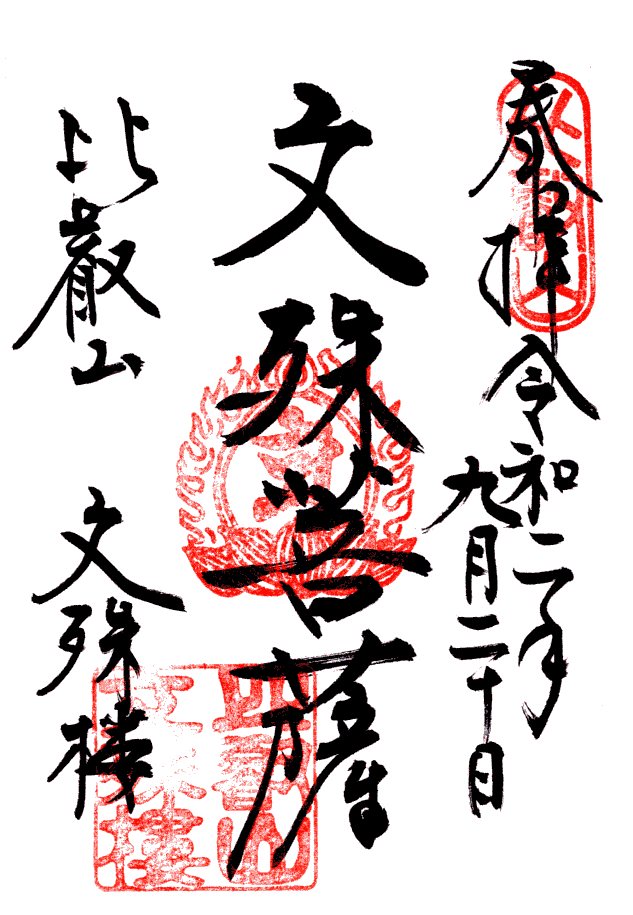 奉拝
令和二年
九月二十日
文殊菩薩
比叡山
文殊楼
比叡山
文殊楼